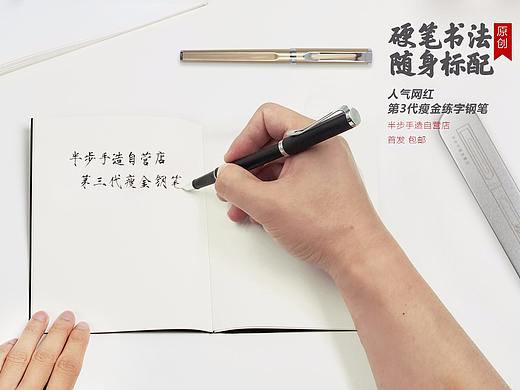 硬笔书法
随身标配
原创
人气网红
第3代瘦金练字钢笔
半步手造自营店
首发 包邮
半步手造自营店
第三代瘦金钢笔